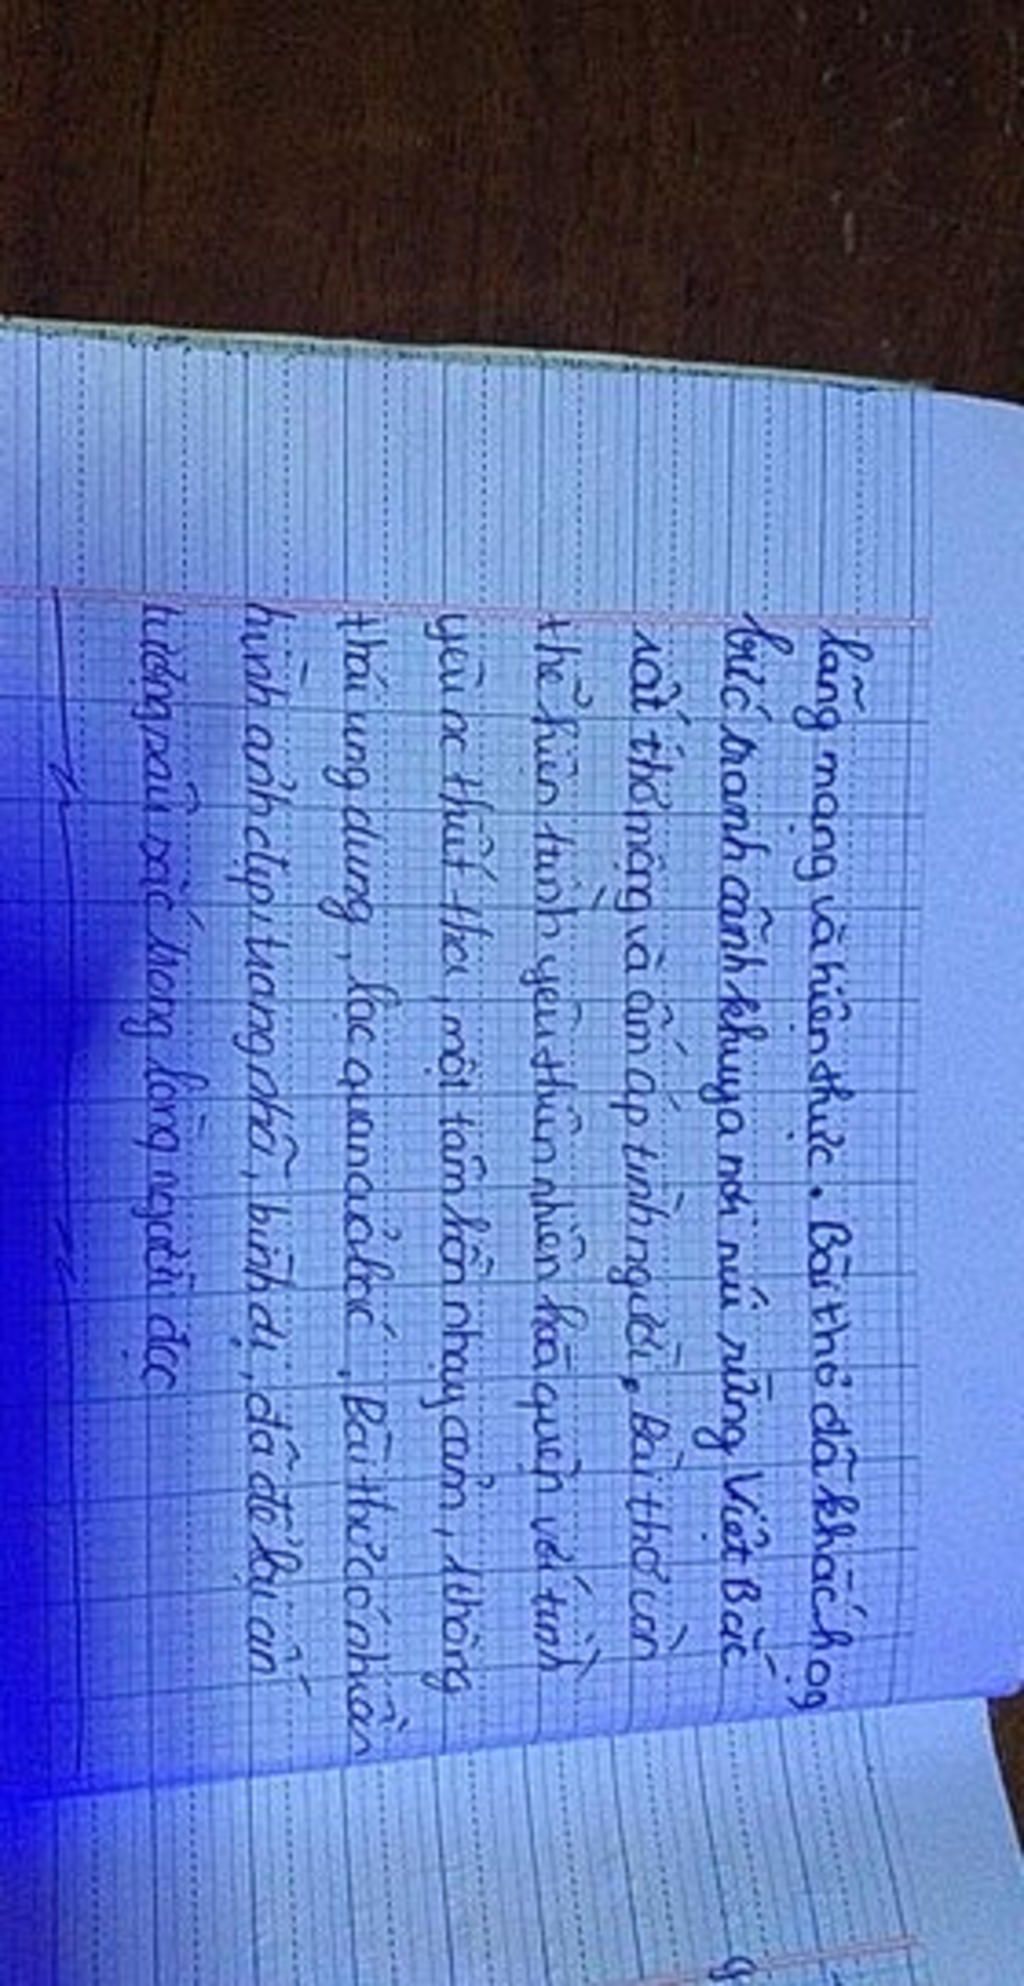 lãng mạng và hiện thực. Bài thơ đã khắc họa
bức tranh cảnh khuya nơi núi rừng Việt Bắc
rất thơ mộng và ấm áp tình người, Bài thơ còn
thể hiện tình yêu thiên nhiên hoà quện với tình
yêu tha thiết, một tâm hồn nhạy cảm,
thái ung dung, lạc quan của Bác, Bài thơ có nhiều
hình ảnh đẹp, trang nhã, bình dị, đã để lại ấn
tượng sâu sắc trong lòng người đọc